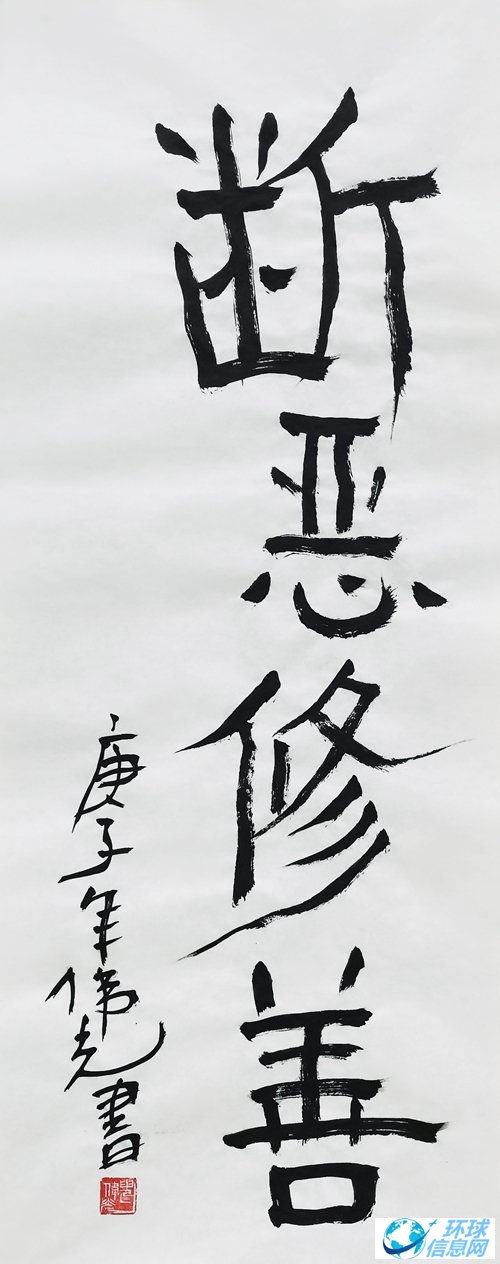 断恶修善
庚子年伟光書
环球
信息网